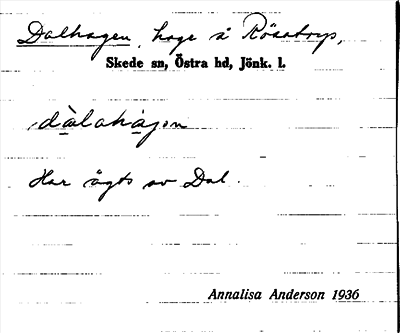 Dalhagen, hage å Rösatorp,
Skede sn, Östra hd, Jönk. l.
dàlahàgən
Har ägts av Dal.
Annalisa Anderson 1936